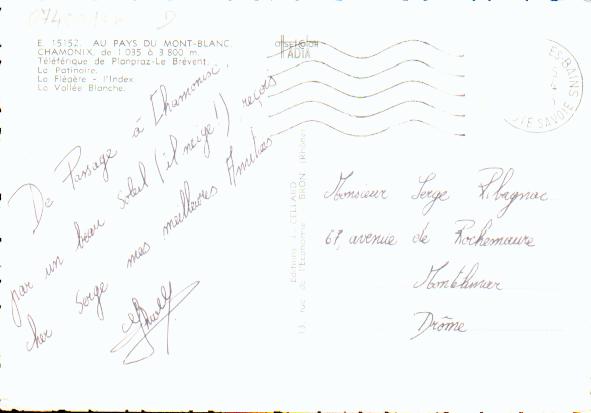 E 15152. AU PAYS DU MONT-BLANC.
CHAMONIX, de 1 035 à 3 800 m.
Téléférique de Planpraz-Le Brévent.
La Patinoire.
La Flégère - l'Index.
La Vallée Blanche.
De Passage à Chamonix,
par un beau soleil (il neige!) reçois
cher Serge mes meilleures Amitiés
Editions J. CELLARD
13, rue de l'Economie BRON (Rhône)
ES BAINS
TE SAVOIE
Monsieur Serge Ribagnac
67, avenue de Rochemaure
Montélimar
Drôme